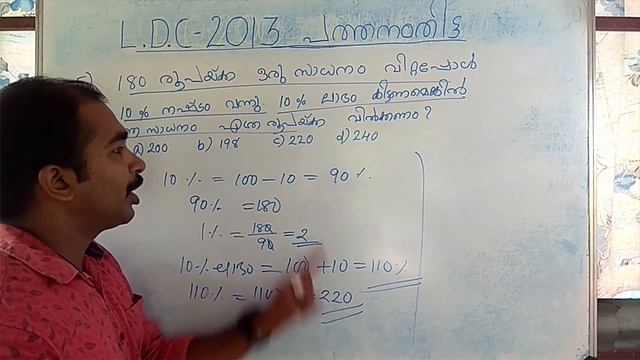 L.D.C-2013 പത്തനംതിട്ട
180 രൂപയ്ക്ക് ഒരു സാധനം വിറ്റപ്പോൾ
10% നഷ്ടം വന്നു. 10% ലാഭം കിട്ടണമെങ്കിൽ
സാധനം എത്ര രൂപയ്ക്ക് വിൽക്കണം?
a) 200 b) 198 c) 220 d) 240
10% = 100 - 10 = 90%
90% = 180
1% = 180/90 = 2
10% ലാഭം = 100 + 10 = 110%
110% = 110 = 220